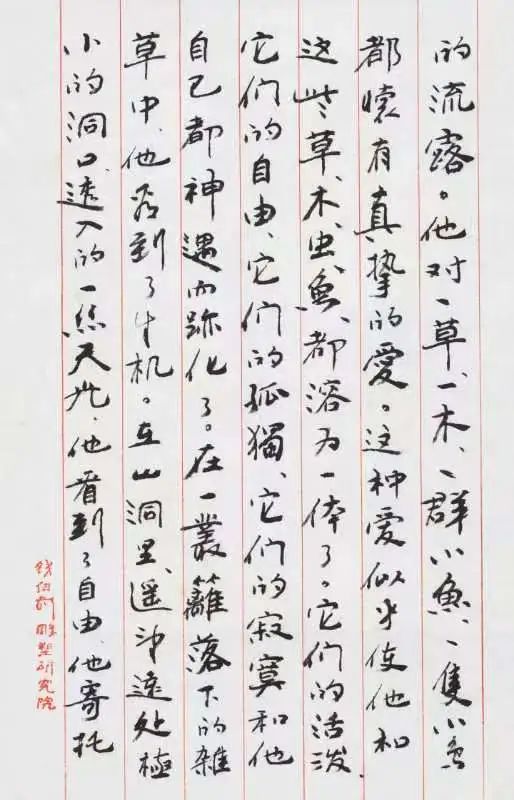 的流露。他对一草、一木、一群小魚、一隻小虫
都懷有真摯的愛。这种愛似乎使他和
这些草、木、虫、魚、都溶为一体了。它们的活泼、
它们的自由、它们的孤獨、它们的寂寞和他
自己都神遇而跡化了。在一叢籬落下的雜
草中、他看到了生机。在山洞里、遥对遠处極
小的洞口、透入的一絲天光、他看到了自由、他寄托
錢紹武雕塑研究院